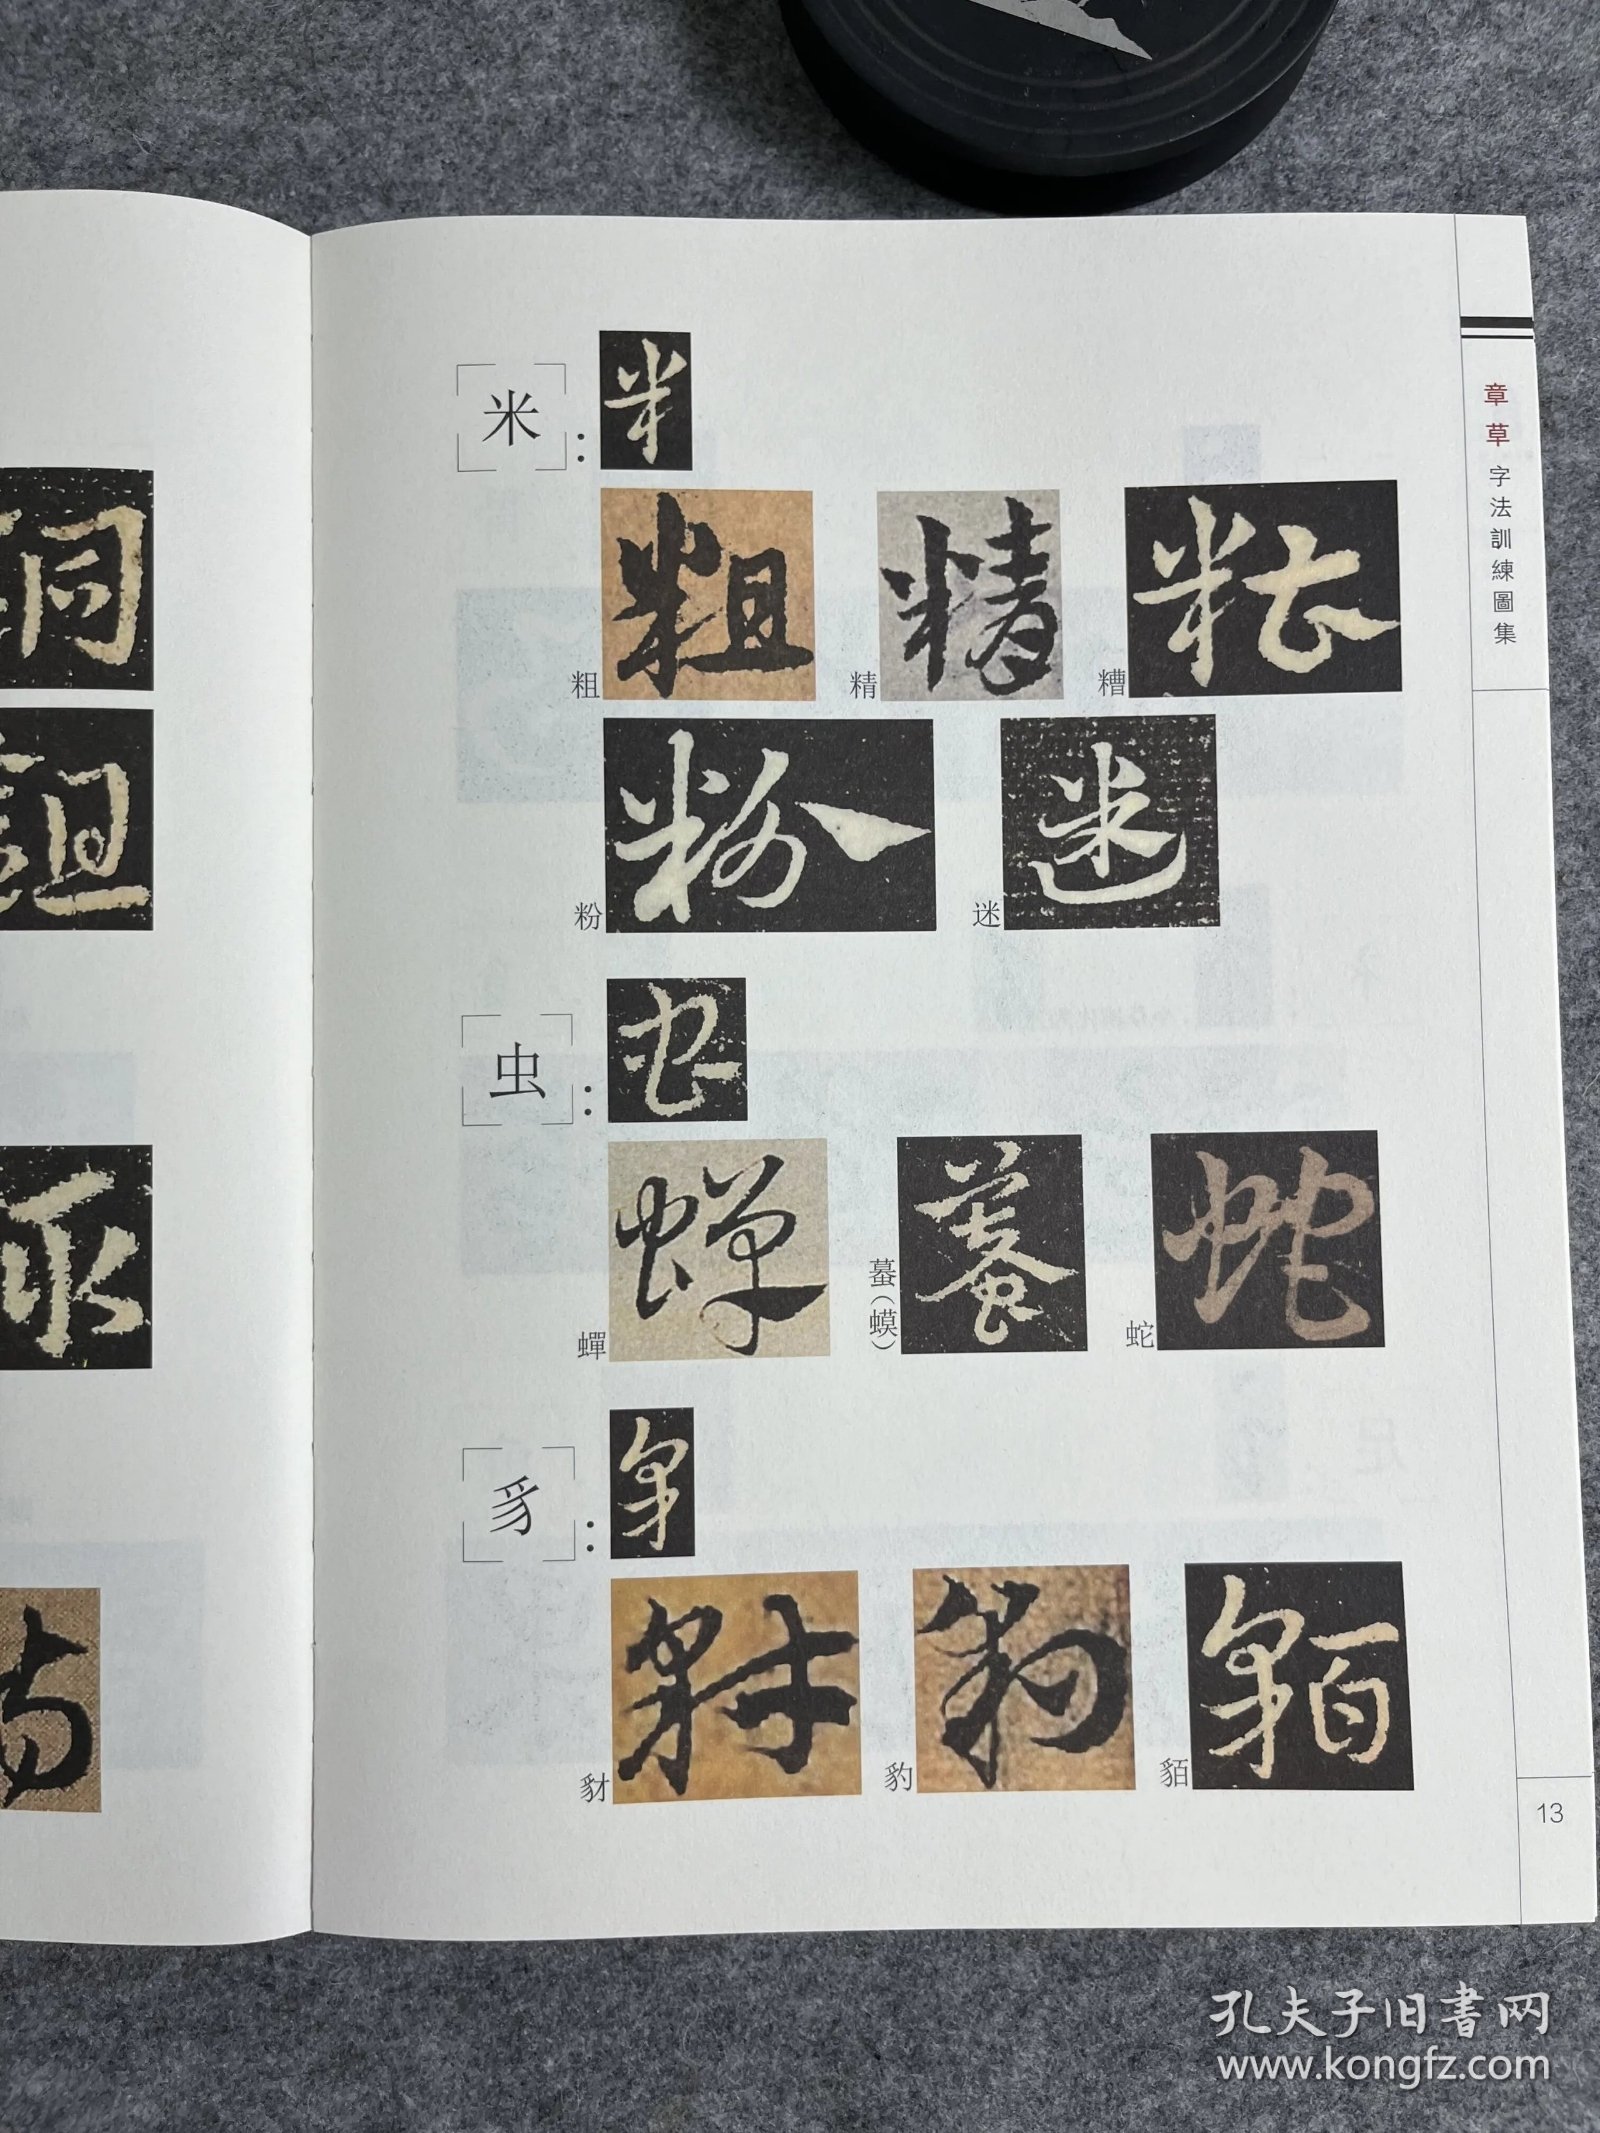 章草字法訓練圖集
米：
粗 精 糟
粉 迷
虫：
蟬 蟇（蟆） 蛇
豸：
豺 豹 貊
13
孔夫子旧書网
www.kongfz.com